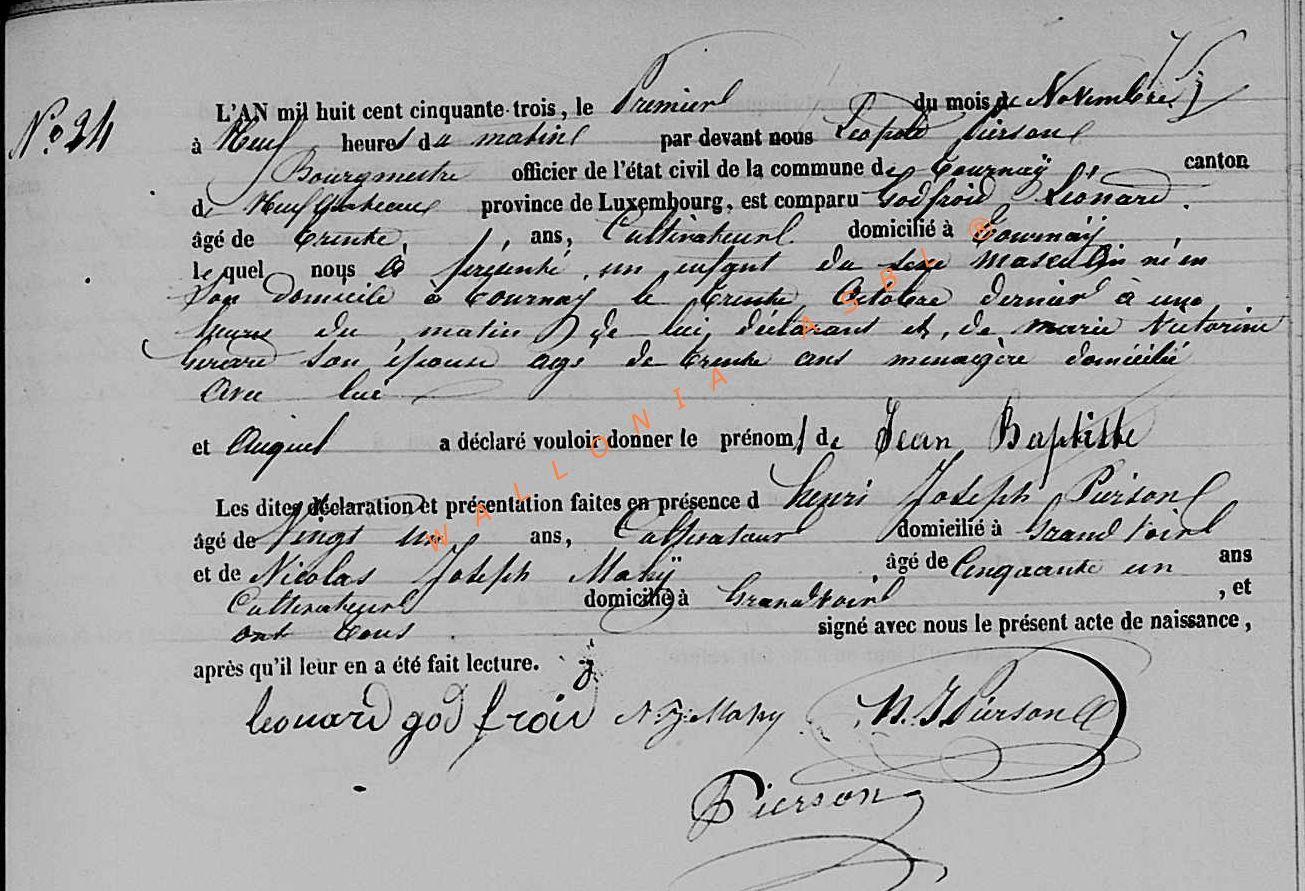 75
N° 24
L'AN mil huit cent cinquante-trois, le Premier du mois de Novembre
à Neuf heures du matin par devant nous Léopold Pierson
Bourgmestre officier de l'état civil de la commune de Tournaÿ, canton
de Neufchateau province de Luxembourg, est comparu Godfroid Léonard
âgé de trente ans, Cultivateur domicilié à Tournaÿ
lequel nous a présenté un enfant du sexe masculin né en
son domicile à Tournaÿ le trente Octobre dernier à une
heure du matin de lui déclarant et de Marie Victorine
son épouse agé de trente ans menagère domicilié
avec lui
et auquel a déclaré vouloir donner le prénom de Jean Baptiste
Les dites déclaration et présentation faites en présence d henri Joseph Pierson
âgé de Vingt un ans, Cultivateur domicilié à Grandvoir
et de Nicolas Joseph Mahÿ âgé de Cinquante un ans
Cultivateur domicilié à Grandvoir , et
ont tous signé avec nous le présent acte de naissance,
après qu'il leur en a été fait lecture.
leonard godfroid N. J. Mahy H. J Pierson
Pierson
WALLONIA ASBL ®